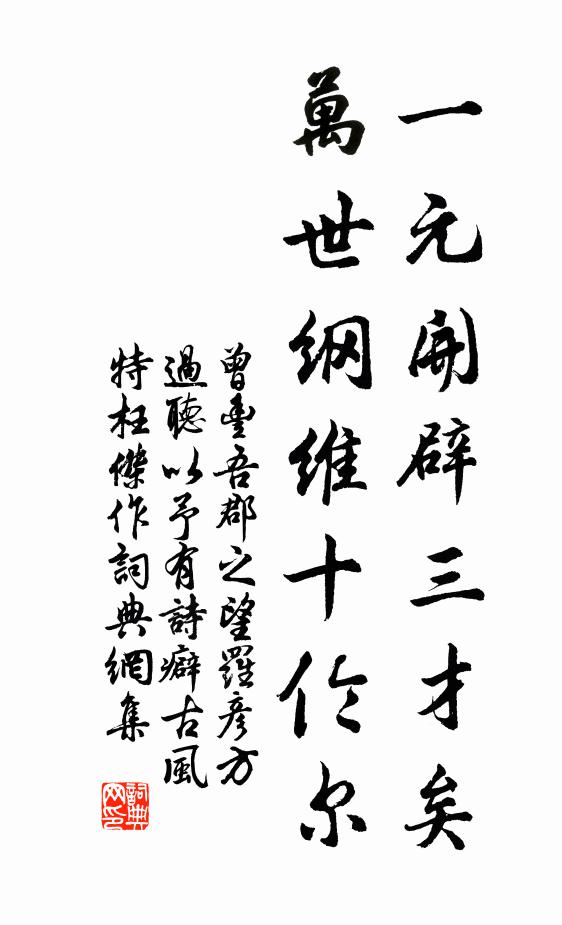 一元開辟三才矣
萬世纲維十伦尔
曾豊吾郡之望羅彦方
過聽以予有詩癖古風
特枉傑作詞典網集
詞典网印